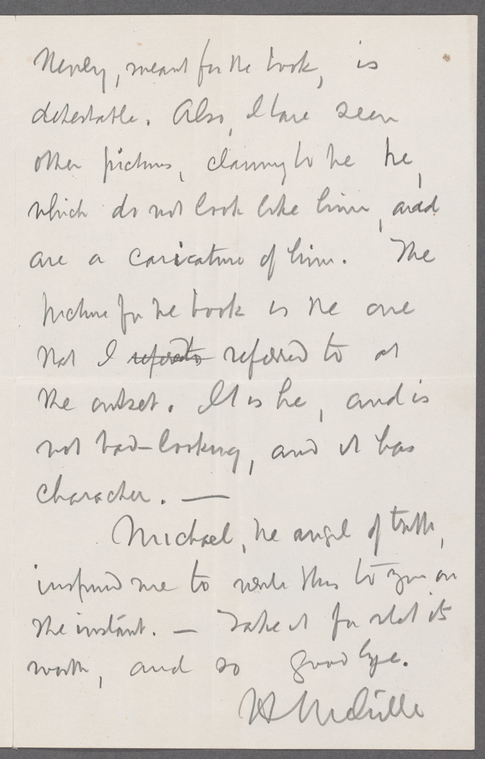 Henley, meant for the book, is
detestable. Also, I have seen
other pictures, claiming to be he,
which do not look like him, and
are a caricature of him. The
picture for the book is the one
that I refered to referred to at
the outset. It is he, and is
not bad-looking, and it has
character. —
Michael, the angel of truth,
inspired me to write this to you on
the instant. — Take it for what it's
worth, and so good bye.
H Melville